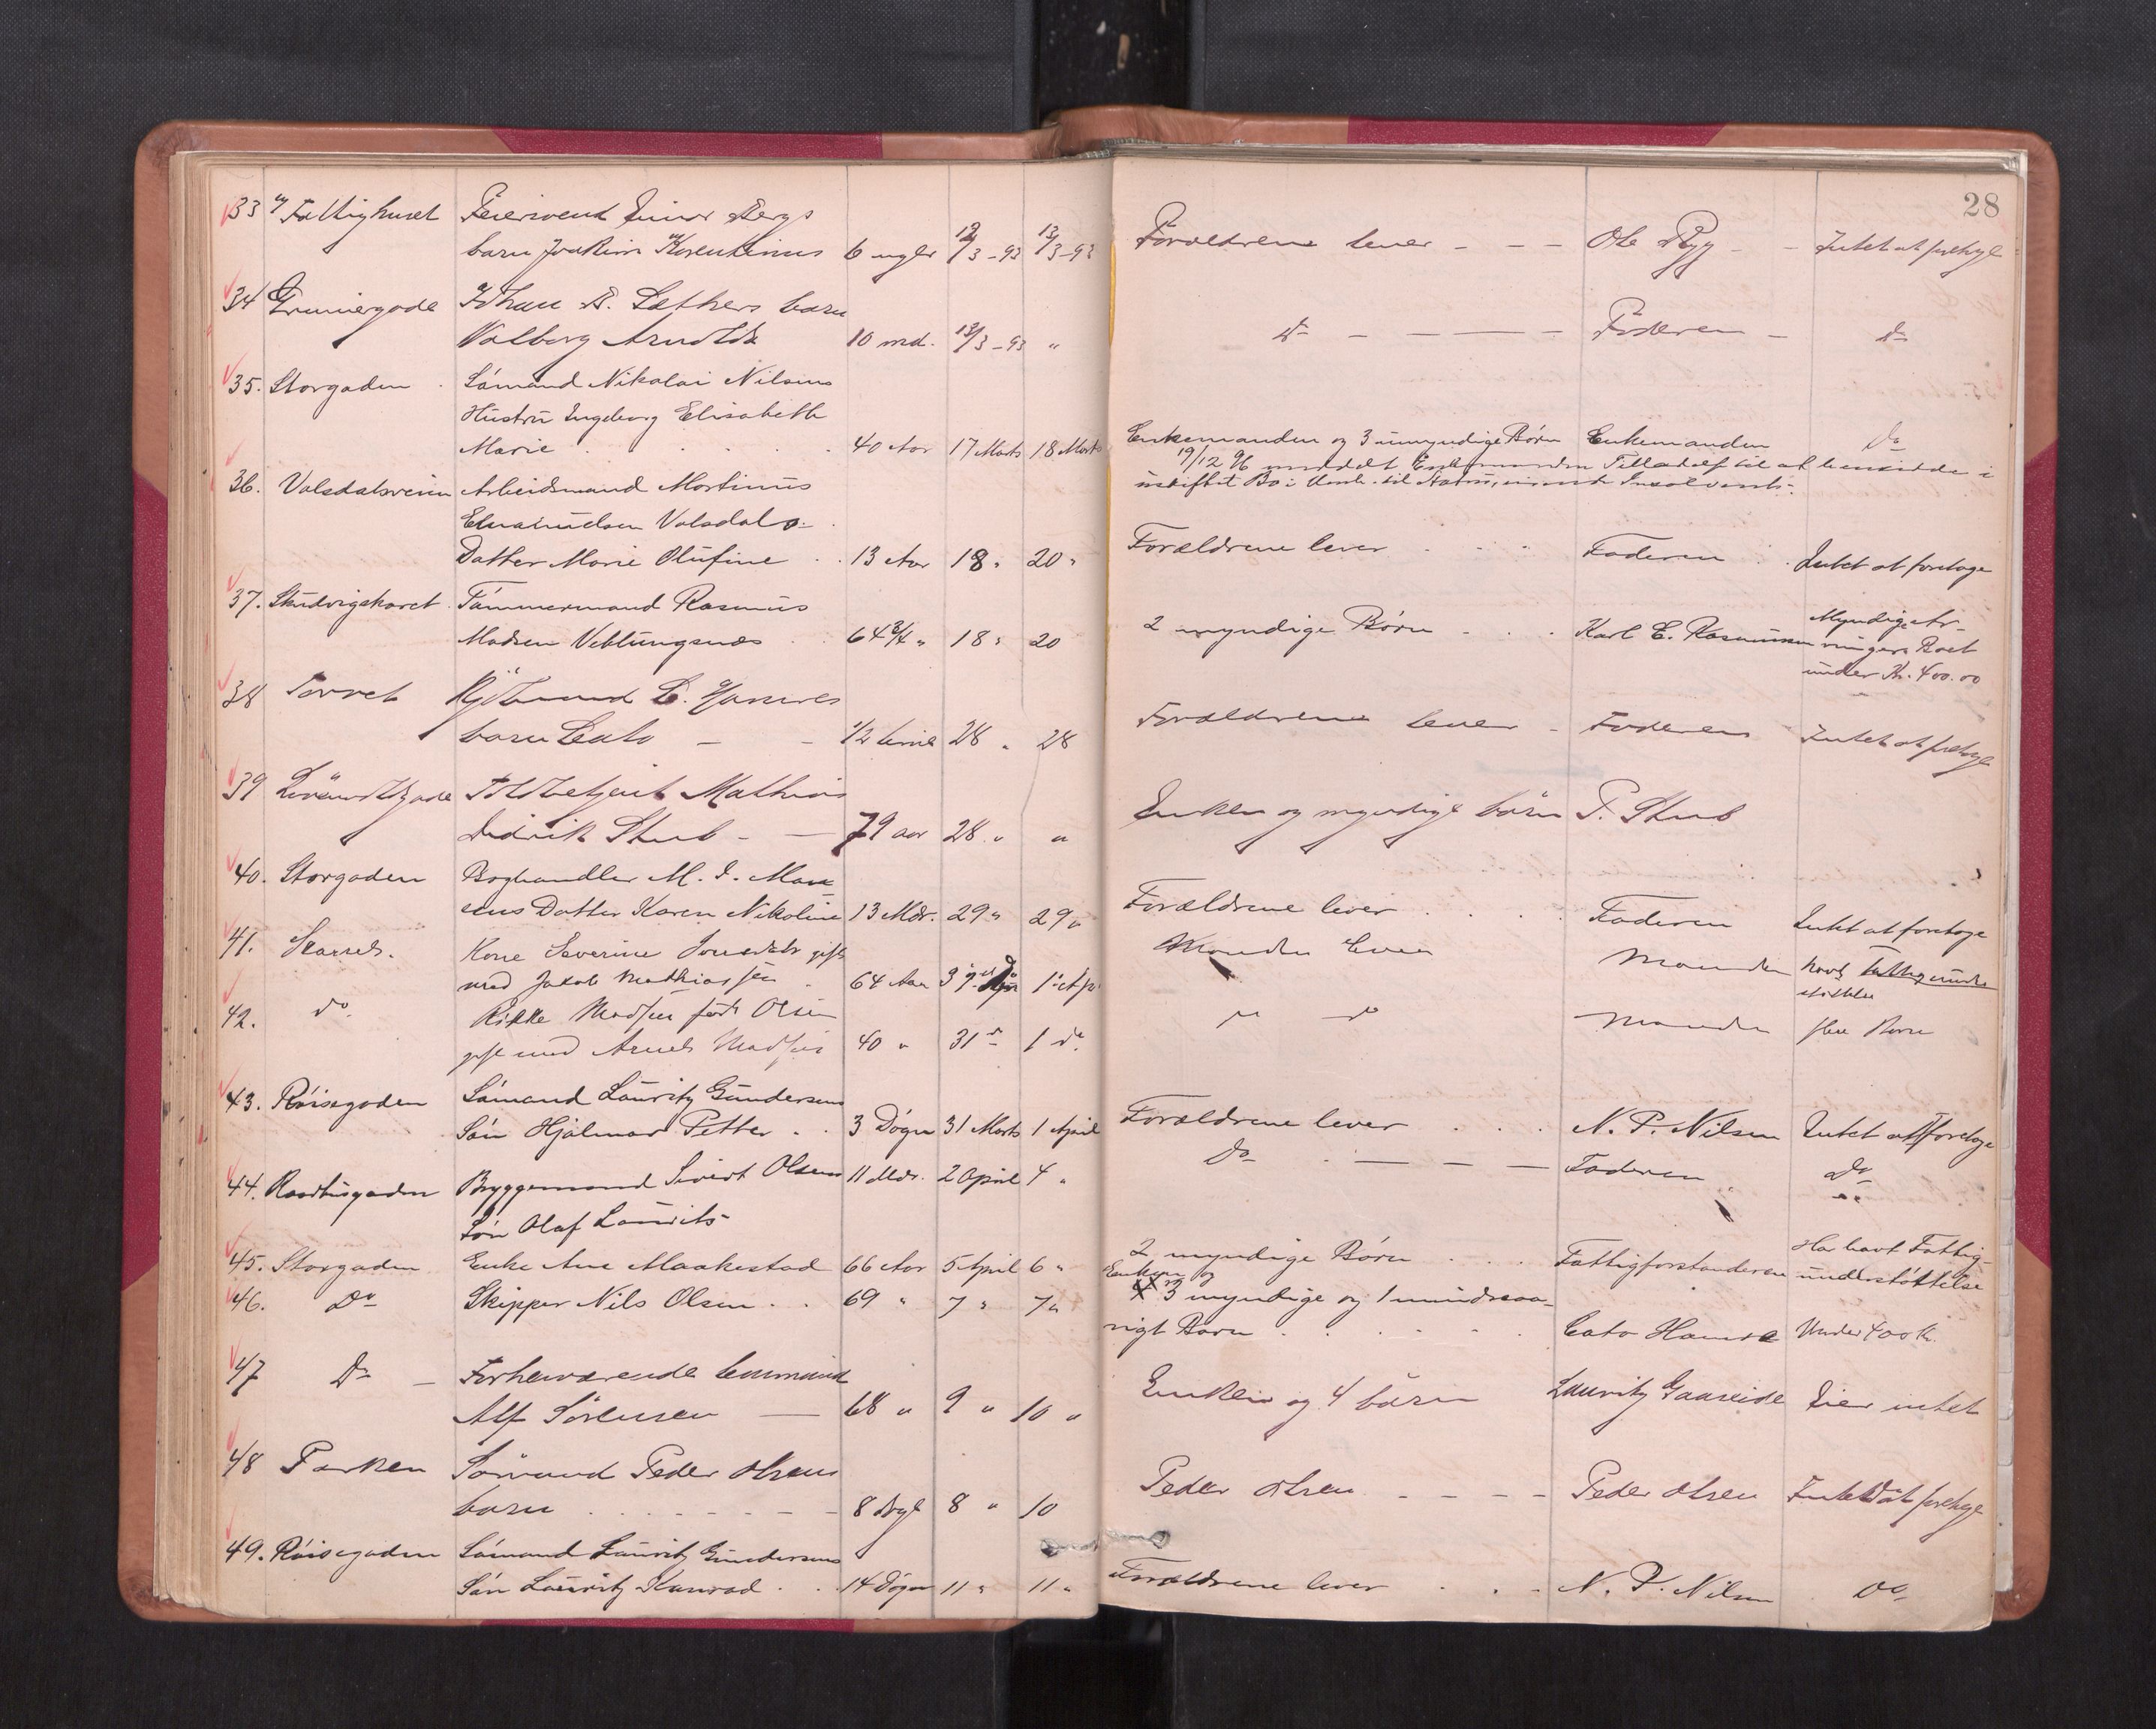 28
33 Fattighuset Feiersvend Einar Bergs
barn Joakim Korentinus 6 uger 12/3-93 13/3-93 Forældrene lever - - - Ole Rygg - - Intet at foretage
34 Johan A. Sæthers barn
Valborg Arnolda 10 md. 12/3-93 " Do - - - Faderen - do
35. Storgaden Sómand Nikolai Nilsens
Hustru Ingeborg Elisabeth
Marie 40 Aar 17 Marts 18 Marts Enkemanden og 3 umyndige Børn Enkemanden Do
19/12 96 meddelt Enkemanden Tilladelse til at hensidde i
uskiftet Bo i
36. Volsdalsveien Arbeidsmand Martinus
Volsdals
Datter Marie Olufine 13 Aar 18 " 20 " Forældrene lever Faderen Intet at foretage
37. Tømmermand Rasmus
Madsen Veblungsnæs 64 3/4 " 18 " 20 2 myndige Børn Karl E. Rasmussen Myndige Ar-
vinger Boet
under Kr. 400.00
38 Torvet
barn Cato - - 1/2 time 28 " 28 Forældrene lever - Faderen Intet at foretage
39 Mathias
Didrik Stub - - 79 aar 28 " " Enken og myndige børn P. Stub
40. Storgaden Boghandler M. I.
Datter Karen Nikoline 13 Mdr. 29 " 29 " Forældrene lever Faderen Intet at foretage
41. Kone Severine gift
med Jakob Mathiassen 64 Aar 1 Apr Manden lever Manden havt Fattigunder-
støttelse
42. do Rikke Madsen født Olsen
gift med Madsen 40 " 31 do 1 do " do Manden Børn
43. Róisegaden Sómand Lauritz Gundersens
Són Hjalmar Petter 3 Døgn 31 Marts 1 April Forældrene lever N. P. Nilsen Intet at foretage
44. Raadhusgaden Bryggemand Sivert Olsens 11 Mdr. 2 April 4 " Do - - - Faderen Do
Són Olaf Laurits
45. Storgaden Enke Ane Maakestad 66 Aar 5 April 6 " 2 myndige Børn Fattigforstanderen Har havt Fattig-
understøttelse
46. Do Skipper Nils Olsen 69 " 7 " 7 " Enken og
3 myndige og 1 mindreaa-
rigt Barn Cato Hamre Under 400 Kr.
47 Do - Forhenværende
Alf Sørensen - 68 " 9 " 10 " Enken og 4 børn Lauritz Gaaseide Eier intet
48 Parken Sømand Peder Olsens
barn 8 dage 8 " 10 Peder Olsen - - - - Peder Olsen Intet at foretage
49. Róisegaden Sómand Lauritz Gundersens
Són Lauritz Konrad 14 Døgn 11 " 11 " Forældrene lever N. P. Nilsen Do